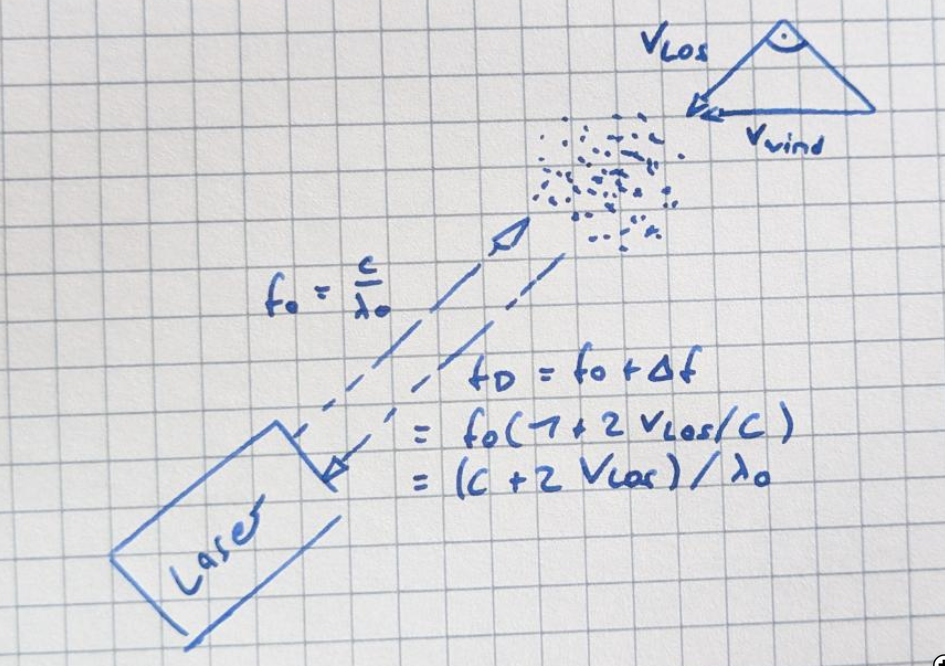 V_LOS
V_wind
f_0 = c / λ_0
f_D = f_0 + Δf
= f_0 (1 + 2 V_LOS / c)
= (c + 2 V_LOS) / λ_0
Laser